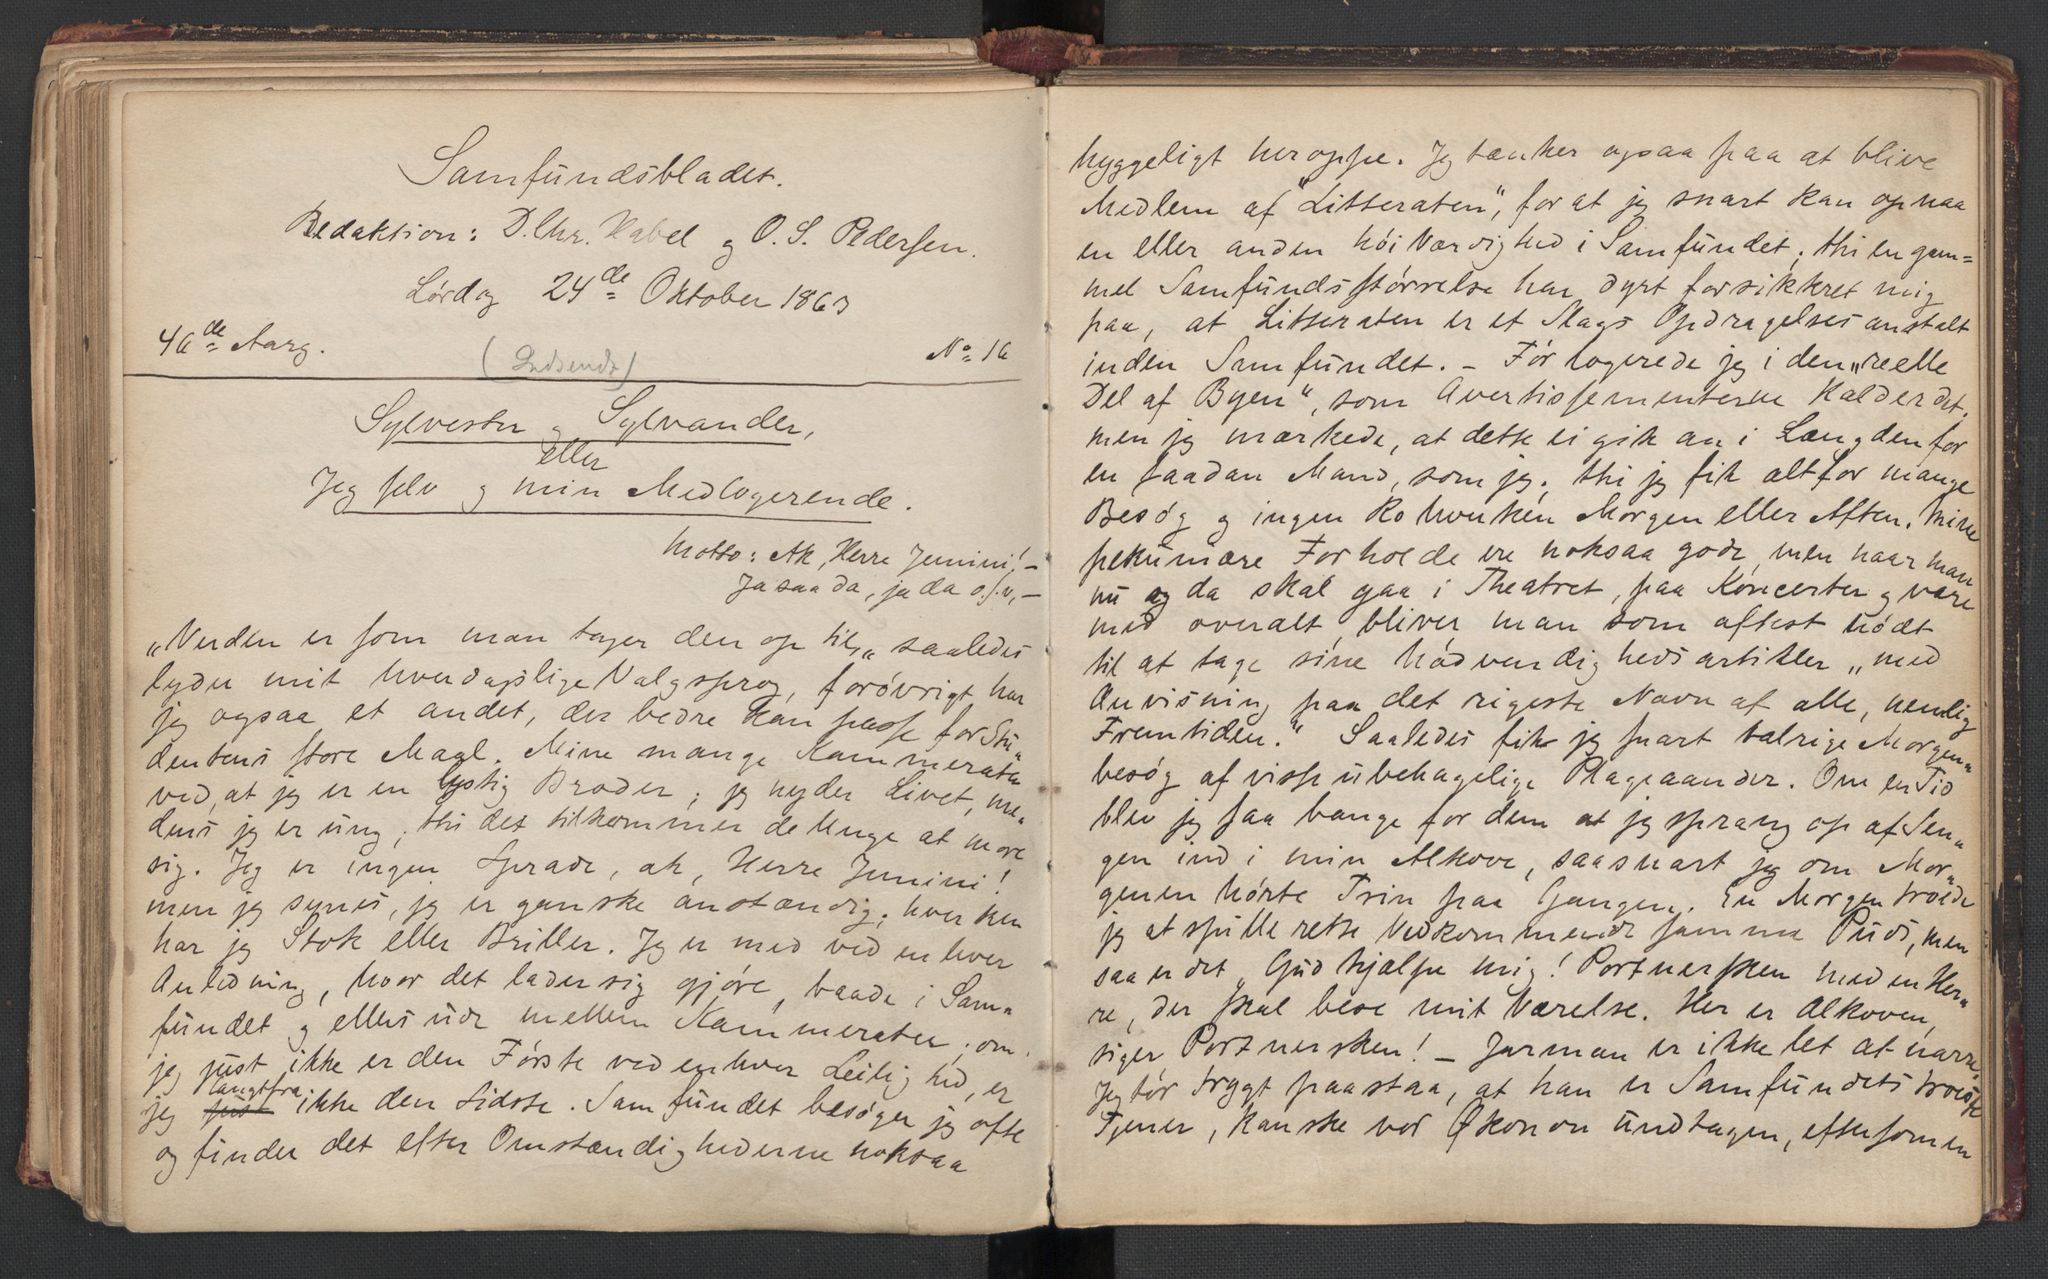 Samfundsbladet.
Redaktion: D. Chr. Habel og O. S. Pedersen.
Lørdag 24de Oktober 1863
4de Aarg.
(Indsendt)
No 16
Sylvester og Sylvander,
eller
Jeg selv og min Medlogerende.
Motto: Ak, Herre Jemini! –
Ja saa da, ja da o.s.v, –
„Verden er som man tager den op til„ saaledes
lyder mit hverdagslige Valgsprog, forøvrigt har
jeg ogsaa et andet, der bedre kan passe for Stu„
dentens store Maal. Mine mange Kammerater
ved, at jeg er en lystig Broder; jeg nyder Livet, me„
dens jeg er ung, thi det tilkommer de Unge at more
sig. Jeg er ingen Sprade, ak, Herre Jemini!
men jeg synes, jeg er ganske anstændig; hverken
har jeg Stok eller Briller. Jeg er med ved enhver
Anledning, hvor det lader sig gjøre, baade i Sam„
fundet og ellers ude mellem Kammerater; om
jeg just ikke er den Første ved enhver Leilighed, er
jeg langtfra ikke den Sidste. Samfundet besøger jeg ofte
og finder det efter Omstændighederne noksaa
hyggeligt heroppe. Jeg tænker ogsaa paa at blive
Medlem af "Litteraten", for at jeg snart kan opnaa
en eller anden høi Værdighed i Samfundet; thi en gam=
mel Samfundsstørrelse har dyrt forsikkret mig
paa, at Litteraten er et Slags Opdragelsesanstalt
inden Samfundet. – Før logerede jeg i den „reelle
Del af Byen", som Avertissementerne kalder det,
men jeg mærkede, at dette ei gik an i Længden for
en saadan Mand, som jeg; thi jeg fik altfor mange
Besøg og ingen Ro hverken Morgen eller Aften. Mine
pekuniære Forholde ere noksaa gode, men naar man
nu og da skal gaa i Theatret, paa Koncerter og være
med overalt, bliver man som oftest nødt
til at tage sine Nødvendighedsartikler „med
Anvisning paa det rigeste Navn af alle, nemlig
Fremtiden." Saaledes fik jeg snart talrige Morgen„
besøg af visse ubehagelige Plageaander. Om en Tid
blev jeg saa bange for dem at jeg sprang op af Sen„
gen ind i min Alkove, saasnart jeg om Mor„
genen hørte Trin paa Gangen. En Morgen troede
jeg at spille rette Vedkommende samme Puds, men
saa er det, Gud hjælpe mig! Portnersken med en Her„
re, der skal bese mit Værelse. Her er Alkoven,
siger Portnersken! – Jarman er ikke let at narre.
Jeg tør trygt paastaa, at han er Samfundets troeste
Tjener, kanske vor Økonom undtagen, eftersom en